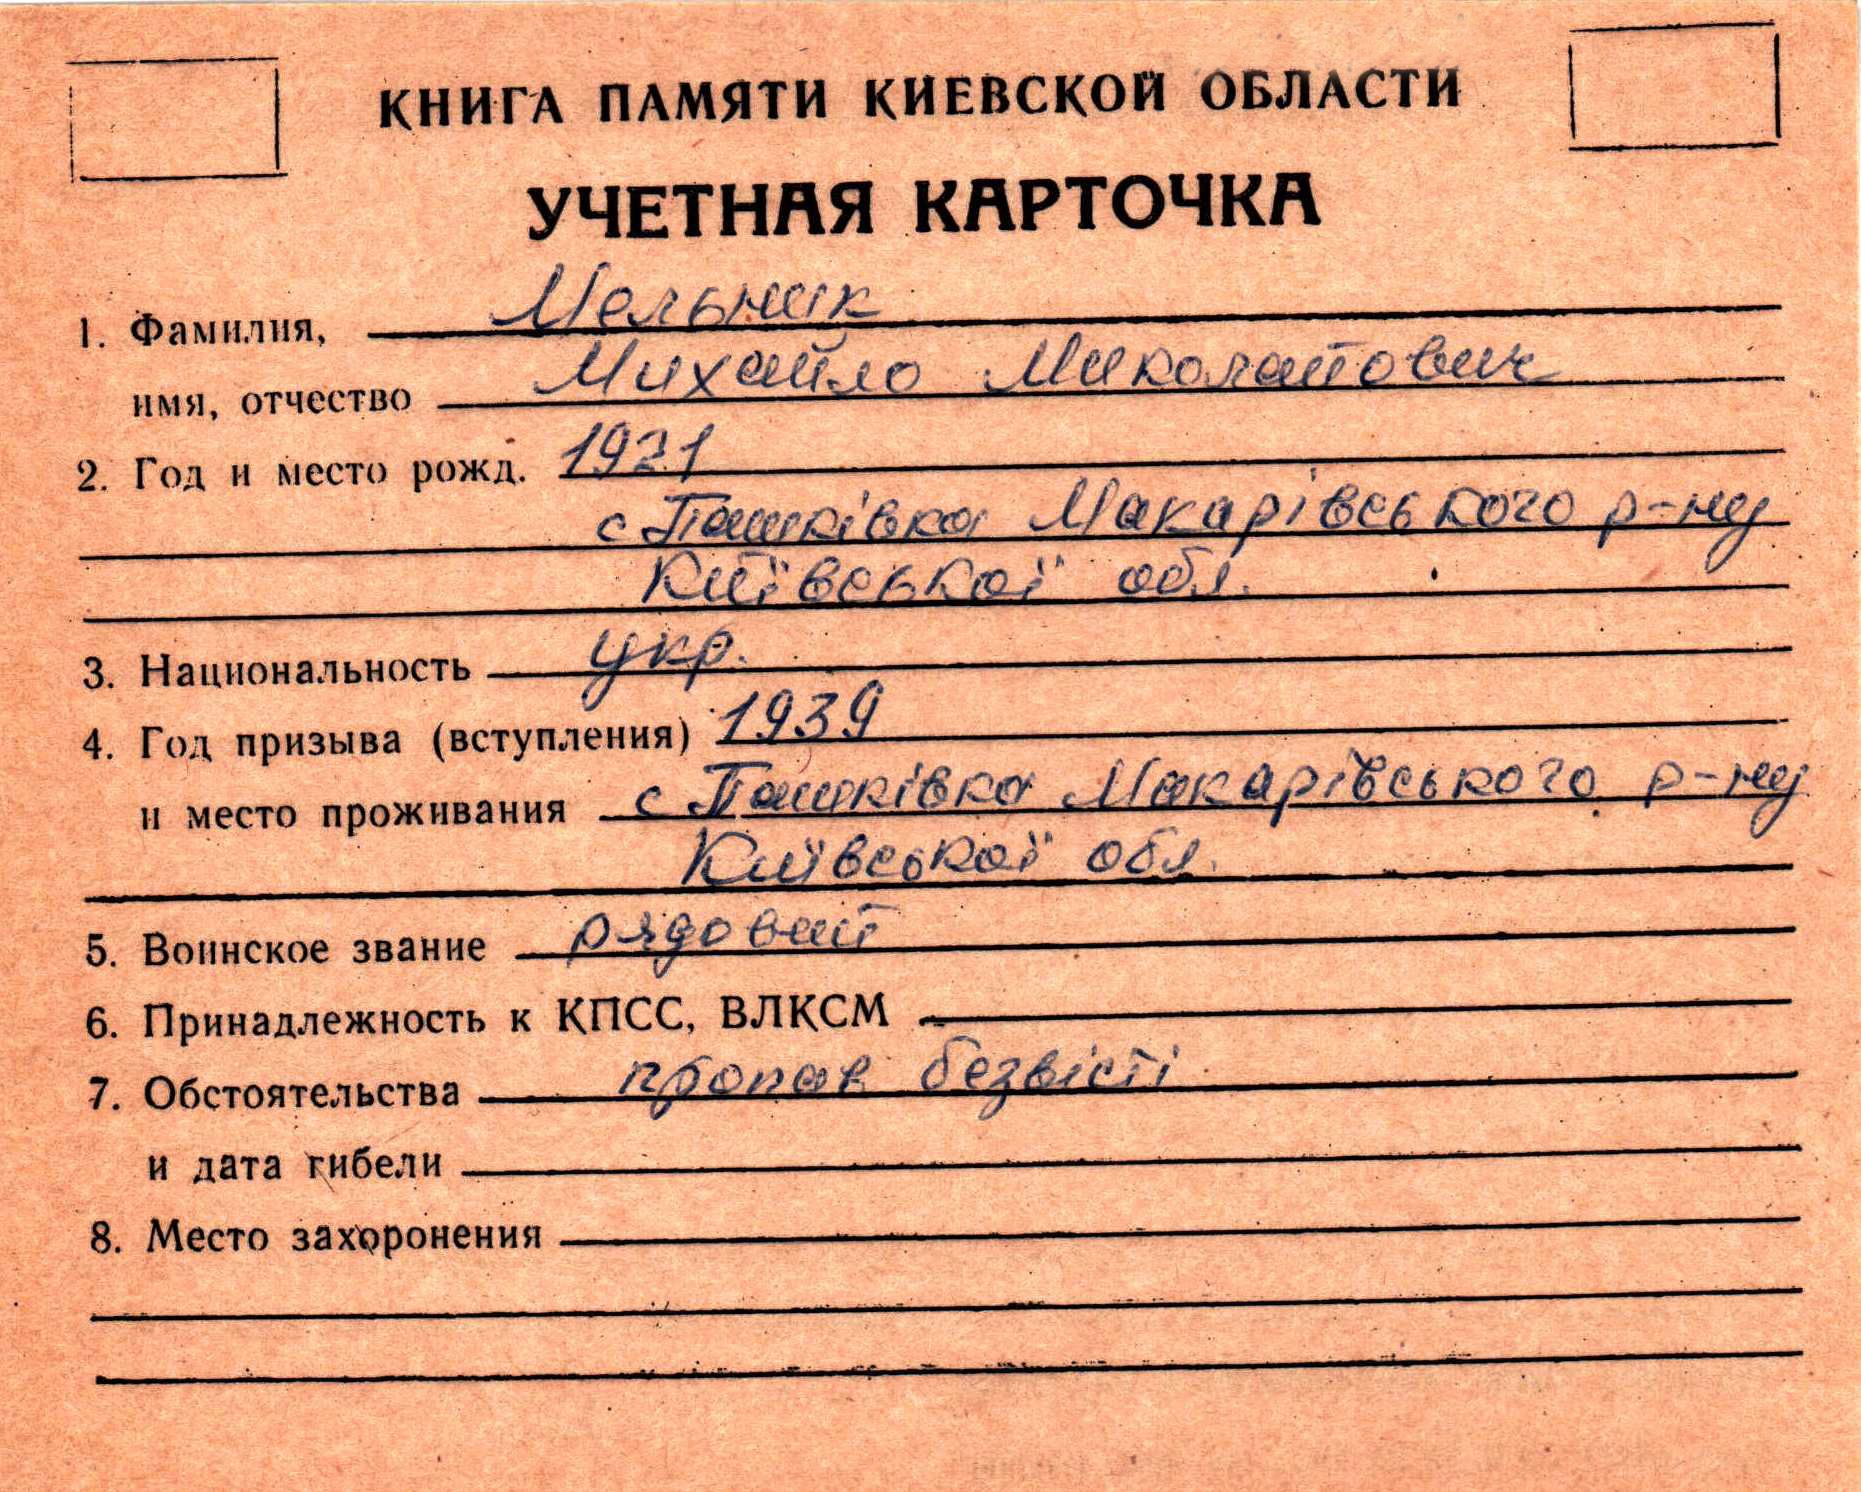 КНИГА ПАМЯТИ КИЕВСКОЙ ОБЛАСТИ
УЧЕТНАЯ КАРТОЧКА
1. Фамилия, Мельник
имя, отчество Михайло Миколайович
2. Год и место рожд. 1921
с Пашківка Макарівського р-ну
Київської обл.
3. Национальность укр.
4. Год призыва (вступления) 1939
и место проживания с Пашківка Макарівського р-ну
Київської обл.
5. Воинское звание рядовий
6. Принадлежность к КПСС, ВЛКСМ
7. Обстоятельства пропав безвісті
и дата гибели
8. Место захоронения